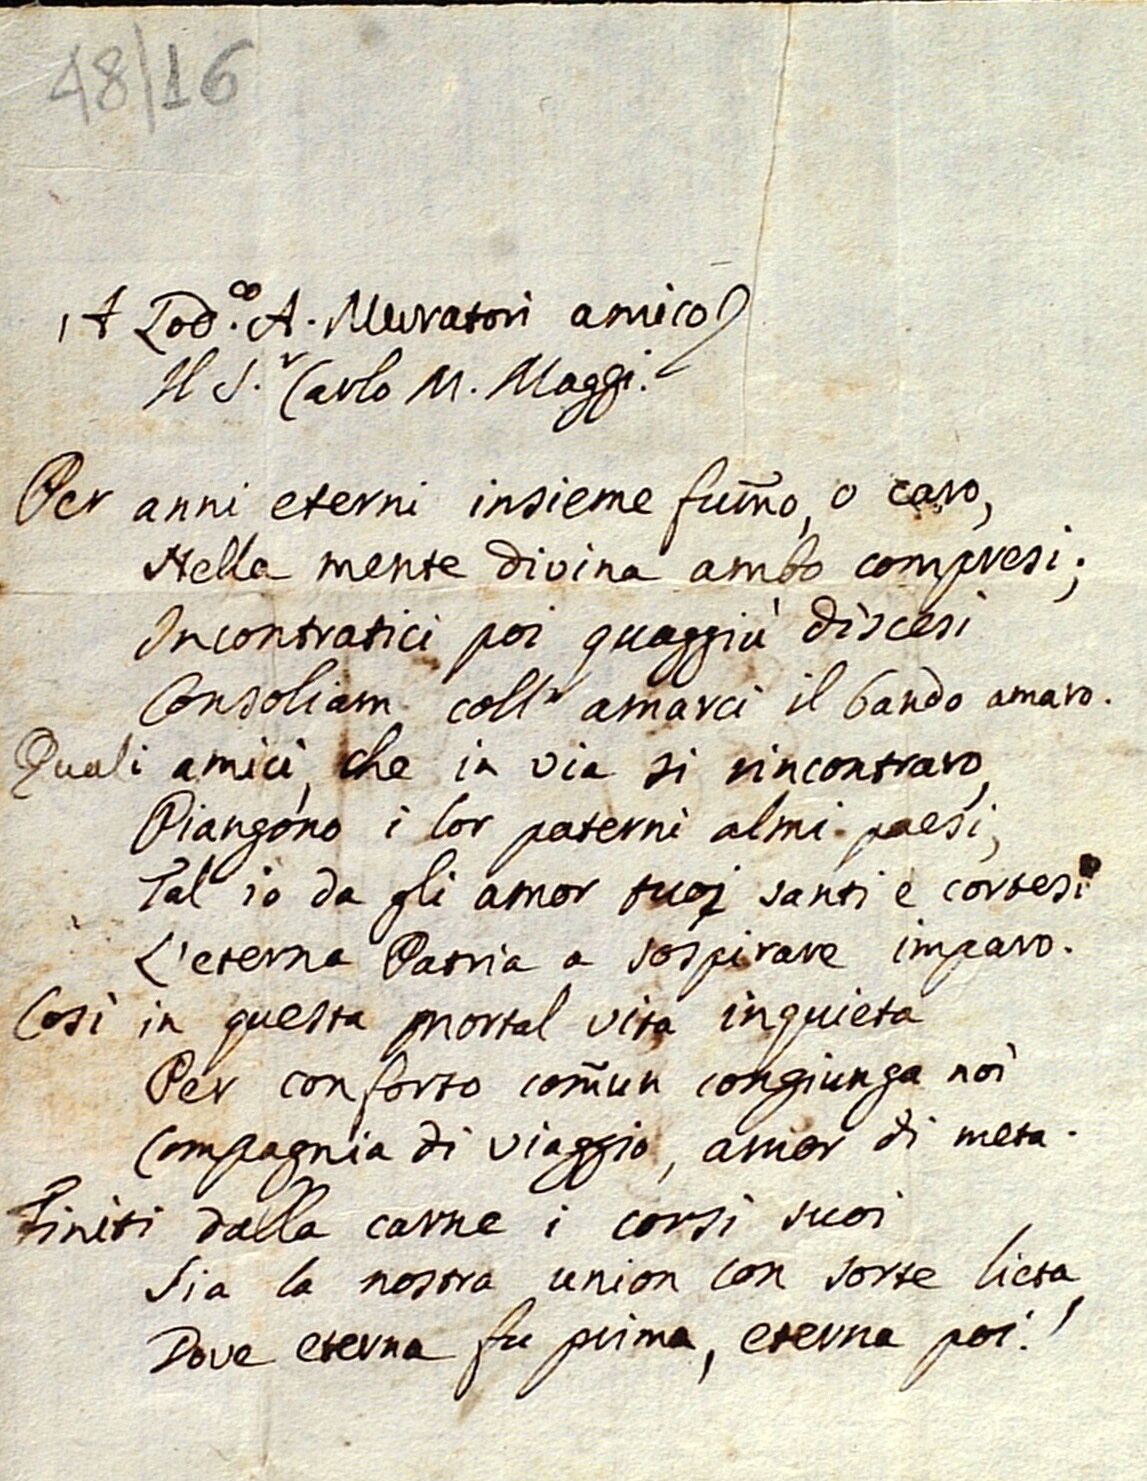 48/16
A Lod.co A. Muratori amico
Il S.r Carlo M. Maggi.
Per anni eterni insieme fum̃o, o caro,
Nella mente divina ambo compresi;
Incontratici poi quaggiù discesi
Consoliam coll' amarci il bando amaro.
Quali amici, che in via si rincontraro,
Piangono i lor paterni almi paesi,
Tal io da gli amor tuoi santi e cortesi
L'eterna Patria a sospirare imparo.
Così in questa mortal vita inquieta
Per conforto com̃un congiunga noi
Compagnia di viaggio, amor di meta.
Finiti dalla carne i corsi suoi
Sia la nostra union con sorte lieta,
Dove eterna fu prima, eterna poi!